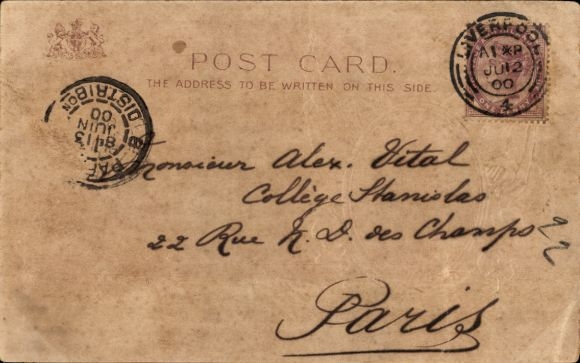 POST CARD.
THE ADDRESS TO BE WRITTEN ON THIS SIDE.
LIVERPOOL
JU 12
00
4
DISTRIBON
13
JUIN
00
Monsieur Alex. Vital
Collège Stanislas
22 Rue N. D. des Champs 22
Paris